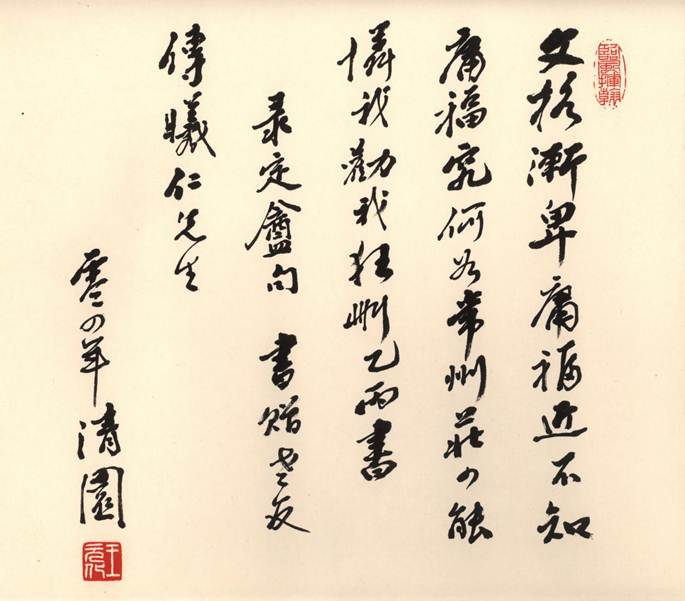 文格漸卑庸福近不知
庸福究何如常州莊四能
憐我勸我狂刪乙丙書
录定盦句 書贈老友
傅曦仁先生
零四年 清園
王元化